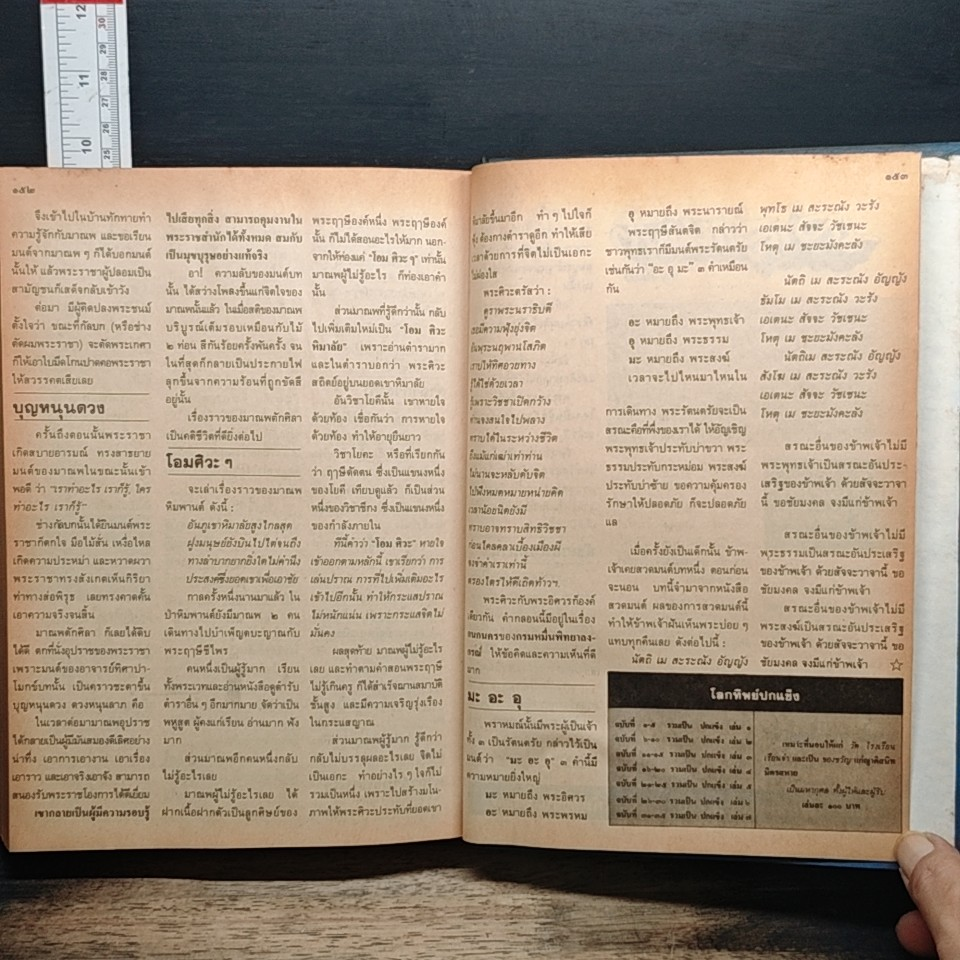 ๑๕๒
จึงเข้าไปในบ้านทักทายทำ
ความรู้จักกับมาณพ และขอเรียน
มนต์จากมาณพ ๆ ก็ได้บอกมนต์
นั้นให้ แล้วพระราชาผู้ปลอมเป็น
สามัญชนก็เสด็จกลับเข้าวัง
ต่อมา มีผู้คิดปลงพระชนม์
ตั้งใจว่า ขณะที่กัลบก (หรือช่าง
ตัดผมพระราชา) จะตัดพระเกศา
ก็ให้เอาใบมีดโกนปาดคอพระราชา
ให้สวรรคตเสียเลย
บุญหนุนดวง
ครั้นถึงตอนนั้นพระราชา
เกิดสบายอารมณ์ ทรงสาธยาย
มนต์ของมาณพในขณะนั้นเข้า
พอดี ว่า "เราทำอะไร เราก็รู้, ใคร
ทำอะไร เราก็รู้"
ช่างกัลบกนั้นได้ยินมนต์พระ
ราชาก็ตกใจ มือไม้สั่น เหงื่อไหล
เกิดความประหม่า และหวาดผวา
พระราชาทรงสังเกตเห็นกิริยา
ท่าทางส่อพิรุธ เลยทรงคาดคั้น
เอาความจริงจนสิ้น
มาณพตักศิลา ก็เลยได้ดิบ
ได้ดี ตกที่นั่งอุปราชของพระราชา
เพราะมนต์ของอาจารย์ทิศาปา-
โมกข์บทนั้น เป็นคราวชะตาขึ้น
บุญหนุนดวง ดวงหนุนลาภ คือ
ในเวลาต่อมามาณพอุปราช
ได้กลายเป็นผู้มีมันสมองดีเลิศอย่าง
น่าทึ่ง เอาการเอางาน เอาเรื่อง
เอาราว และเอาจริงเอาจัง สามารถ
สนองรับพระราชโองการได้ดีเยี่ยม
เขากลายเป็นผู้มีความรอบรู้
ไปเสียทุกสิ่ง สามารถคุมงานใน
พระราชสำนักได้ทั้งหมด สมกับ
เป็นมุขบุรุษอย่างแท้จริง
อา! ความลับของมนต์บท
นั้น ได้สว่างโพลงขึ้นแก่จิตใจของ
มาณพนั้นแล้ว ในเมื่อสติของมาณพ
บริบูรณ์เต็มรอบเหมือนกับไม้
๒ ท่อน สีกันร้อยครั้งพันครั้ง จน
ในที่สุดก็กลายเป็นประกายไฟ
ลุกขึ้นจากความร้อนที่ถูกขัดสี
อยู่นั้น
เรื่องราวของมาณพตักศิลา
เป็นคติชีวิตที่ดียิ่งต่อไป
โอมศิวะ ๆ
จะเล่าเรื่องราวของมาณพ
หิมพานต์ ดังนี้ :
อันภูเขาหิมาลัยสูงไกลสุด
ฝูงมนุษย์ยังบินไปไต่จนถึง
ทางลำบากยากยิ่งใดไม่คำนึง
ประสงค์ซึ่งยอดเขาเพื่อเอาชัย
กาลครั้งหนึ่งนานมาแล้ว ใน
ป่าหิมพานต์ยังมีมาณพ ๒ คน
เดินทางไปบำเพ็ญตบะญาณกับ
พระฤๅษีชีไพร
คนหนึ่งเป็นผู้รู้มาก เรียน
ทั้งพระเวทและอ่านหนังสือดูตำรับ
ตำราอื่น ๆ อีกมากมาย จัดว่าเป็น
พหูสูต ผู้คงแก่เรียน อ่านมาก ฟัง
มาก
ส่วนมาณพอีกคนหนึ่งกลับ
ไม่รู้อะไรเลย
มาณพผู้ไม่รู้อะไรเลย ได้
ฝากเนื้อฝากตัวเป็นลูกศิษย์ของ
พระฤๅษีองค์หนึ่ง พระฤๅษีองค์
นั้น ก็ไม่ได้สอนอะไรให้มาก นอก-
จากให้ท่องแค่ "โอม ศิวะ ๆ" เท่านั้น
มาณพผู้ไม่รู้อะไร ก็ท่องเอาคำ
นั้น
ส่วนมาณพที่รู้ดีกว่านั้น กลับ
ไปเพิ่มเติมใหม่เป็น "โอม ศิวะ
หิมาลัย" เพราะอ่านตำรามาก
และในตำราบอกว่า พระศิวะ
สถิตย์อยู่บนยอดเขาหิมาลัย
อันวิชาโยคีนั้น เขาหายใจ
ด้วยท้อง เชื่อกันว่า การหายใจ
ด้วยท้อง ทำให้อายุยืนยาว
วิชาโยคะ หรือที่เรียกกัน
ว่า ฤๅษีดัดตน ซึ่งเป็นแขนงหนึ่ง
ของโยคี เทียบดูแล้ว ก็เป็นส่วน
หนึ่งของวิชาชี่กง ซึ่งเป็นแขนงหนึ่ง
ของกำลังภายใน
ทีนี้คำว่า "โอม ศิวะ" หายใจ
เข้าออกตามหลักนี้ เขาเรียกว่า การ
เล่นปราณ การที่ไปเพิ่มเติมอะไร
เข้าไปอีกนั้น ทำให้กระแสปราณ
ไม่หนักแน่น เพราะกระแสจิตไม่
มั่นคง
ผลสุดท้าย มาณพผู้ไม่รู้อะไร
เลย และทำตามคำสอนพระฤๅษี
ไม่รู้เกินครู ก็ได้สำเร็จฌานสมาบัติ
ชั้นสูง และมีความเจริญรุ่งเรือง
ในกระแสญาณ
ส่วนมาณพผู้รู้มาก รู้ดีกว่า
กลับไม่บรรลุผลอะไรเลย จิตไม่
เป็นเอกะ ทำอย่างไร ๆ ใจก็ไม่
รวมเป็นหนึ่ง เพราะไปสร้างมโน-
ภาพให้พระศิวะประทับที่ยอดเขา
๑๕๓
หิมาลัยขึ้นมาอีก ทำ ๆ ไปใจก็
ต้องกางตำราดูอีก ทำให้เสีย
เวลาด้วยการที่จิตไม่เป็นเอกะ
ไม่ผ่องใส
พระศิวะตรัสว่า :
ดูราพระนราธิบดี
เธอมีความฟุ้งยุ่งจิต
รู้เพราะวิชชาเปิดกว้าง
ท่านจงสนใจไปพลาง
ทราบได้ในระหว่างชีวิต
ไม่นานจะหลับดับจิต
ไปพึ่งหมดหมายหน่ายคิด
เวลาน้อยนิดยังมี
ทราบอาจทราบสิทธิวิชชา
จงจำคำเราเท่านี้
พระศิวะกับพระอิศวรก็องค์
เดียวกัน คำกลอนนี้มีอยู่ในเรื่อง
กนกนครของกรมหมื่นพิทยาลง-
กรณ์ ให้ข้อคิดและความเห็นที่ดี
มาก
มะ อะ อุ
พราหมณ์นั้นมีพระผู้เป็นเจ้า
ทั้ง ๓ เป็นรัตนตรัย กล่าวไว้เป็น
มนต์ว่า "มะ อะ อุ" ๓ คำนี้มี
ความหมายยิ่งใหญ่
มะ หมายถึง พระอิศวร
อะ หมายถึง พระพรหม
อุ หมายถึง พระนารายณ์
พระฤๅษีสันตจิต กล่าวว่า
ชาวพุทธเราก็มีมนต์พระรัตนตรัย
เช่นกันว่า "อะ อุ มะ" ๓ คำเหมือน
กัน
อะ หมายถึง พระพุทธเจ้า
อุ หมายถึง พระธรรม
มะ หมายถึง พระสงฆ์
เวลาจะไปไหนมาไหนใน
การเดินทาง พระรัตนตรัยจะเป็น
สรณะคือที่พึ่งของเราได้ ให้อัญเชิญ
พระพุทธเจ้าประทับบ่าขวา พระ
ธรรมประทับกระหม่อม พระสงฆ์
ประทับบ่าซ้าย ขอความคุ้มครอง
รักษาให้ปลอดภัย ก็จะปลอดภัย
แล
เมื่อครั้งยังเป็นเด็กนั้น ข้าพ-
เจ้าเคยสวดมนต์บทหนึ่ง ตอนก่อน
จะนอน บทนี้จำมาจากหนังสือ
สวดมนต์ ผลของการสวดมนต์นี้
ทำให้ข้าพเจ้าฝันเห็นพระบ่อย ๆ
แทบทุกคืนเลย ดังต่อไปนี้ :
นัตถิ เม สะระณัง อัญญัง
พุทโธ เม สะระณัง วะรัง
เอเตนะ สัจจะ วัชเชนะ
โหตุ เม ชะยะมังคะลัง
นัตถิ เม สะระณัง อัญญัง
ธัมโม เม สะระณัง วะรัง
เอเตนะ สัจจะ วัชเชนะ
โหตุ เม ชะยะมังคะลัง
นัตถิเม สะระณัง อัญญัง
สังโฆ เม สะระณัง วะรัง
เอเตนะ สัจจะ วัชเชนะ
โหตุ เม ชะยะมังคะลัง
สรณะอื่นของข้าพเจ้าไม่มี
พระพุทธเจ้าเป็นสรณะอันประ-
เสริฐของข้าพเจ้า ด้วยสัจจะวาจา
นี้ ขอชัยมงคล จงมีแก่ข้าพเจ้า
สรณะอื่นของข้าพเจ้าไม่มี
พระธรรมเป็นสรณะอันประเสริฐ
ของข้าพเจ้า ด้วยสัจจะวาจานี้ ขอ
ชัยมงคล จงมีแก่ข้าพเจ้า
สรณะอื่นของข้าพเจ้าไม่มี
พระสงฆ์เป็นสรณะอันประเสริฐ
ของข้าพเจ้า ด้วยสัจจะวาจานี้ ขอ
ชัยมงคล จงมีแก่ข้าพเจ้า
โลกทิพย์ปกแข็ง
ฉบับที่ ๑-๕ รวมเป็น ปกแข็ง เล่ม ๑
ฉบับที่ ๖-๑๐ รวมเป็น ปกแข็ง เล่ม ๒
ฉบับที่ ๑๑-๑๕ รวมเป็น ปกแข็ง เล่ม ๓
ฉบับที่ ๑๖-๒๐ รวมเป็น ปกแข็ง เล่ม ๔
ฉบับที่ ๒๑-๒๕ รวมเป็น ปกแข็ง เล่ม ๕
ฉบับที่ ๒๖-๓๐ รวมเป็น ปกแข็ง เล่ม ๖
ฉบับที่ ๓๑-๓๕ รวมเป็น ปกแข็ง เล่ม ๗
เหมาะที่มอบให้แก่ วัด โรงเรียน
มิตรสหาย
เป็นมหากุศล ทั้งผู้ให้และผู้รับ
เล่มละ ๑๐๐ บาท
12
11
10
30
29
28
27
26
25